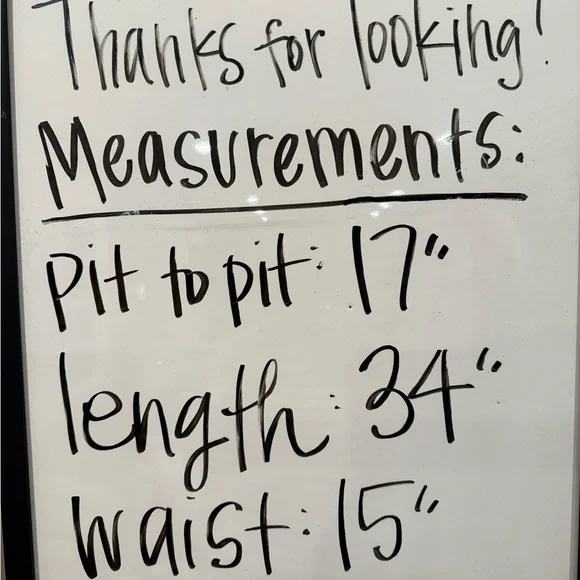 Thanks for looking!
Measurements:
pit to pit: 17"
length: 34"
waist: 15"